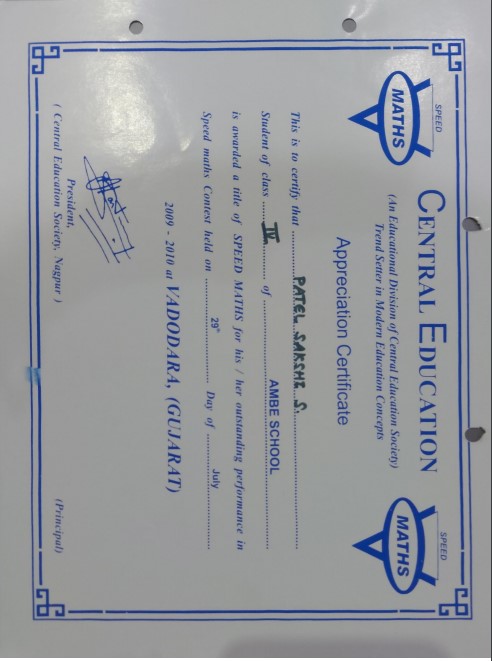 SPEED
MATHS
CENTRAL EDUCATION
SPEED
MATHS
(An Educational Division of Central Education Society)
Trend Setter in Modern Education Concepts
Appreciation Certificate
This is to certify that PATEL SAKSHI S.
Student of class IV of AMBE SCHOOL
is awarded a title of SPEED MATHS for his / her outstanding performance in
Speed maths Contest held on 29th Day of July
2009 - 2010 at VADODARA, (GUJARAT)
President,
( Central Education Society, Nagpur )
(Principal)